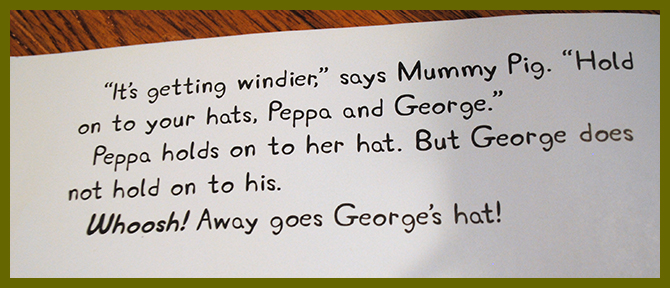 "It's getting windier," says Mummy Pig. "Hold
on to your hats, Peppa and George."
Peppa holds on to her hat. But George does
not hold on to his.
Whoosh! Away goes George's hat!